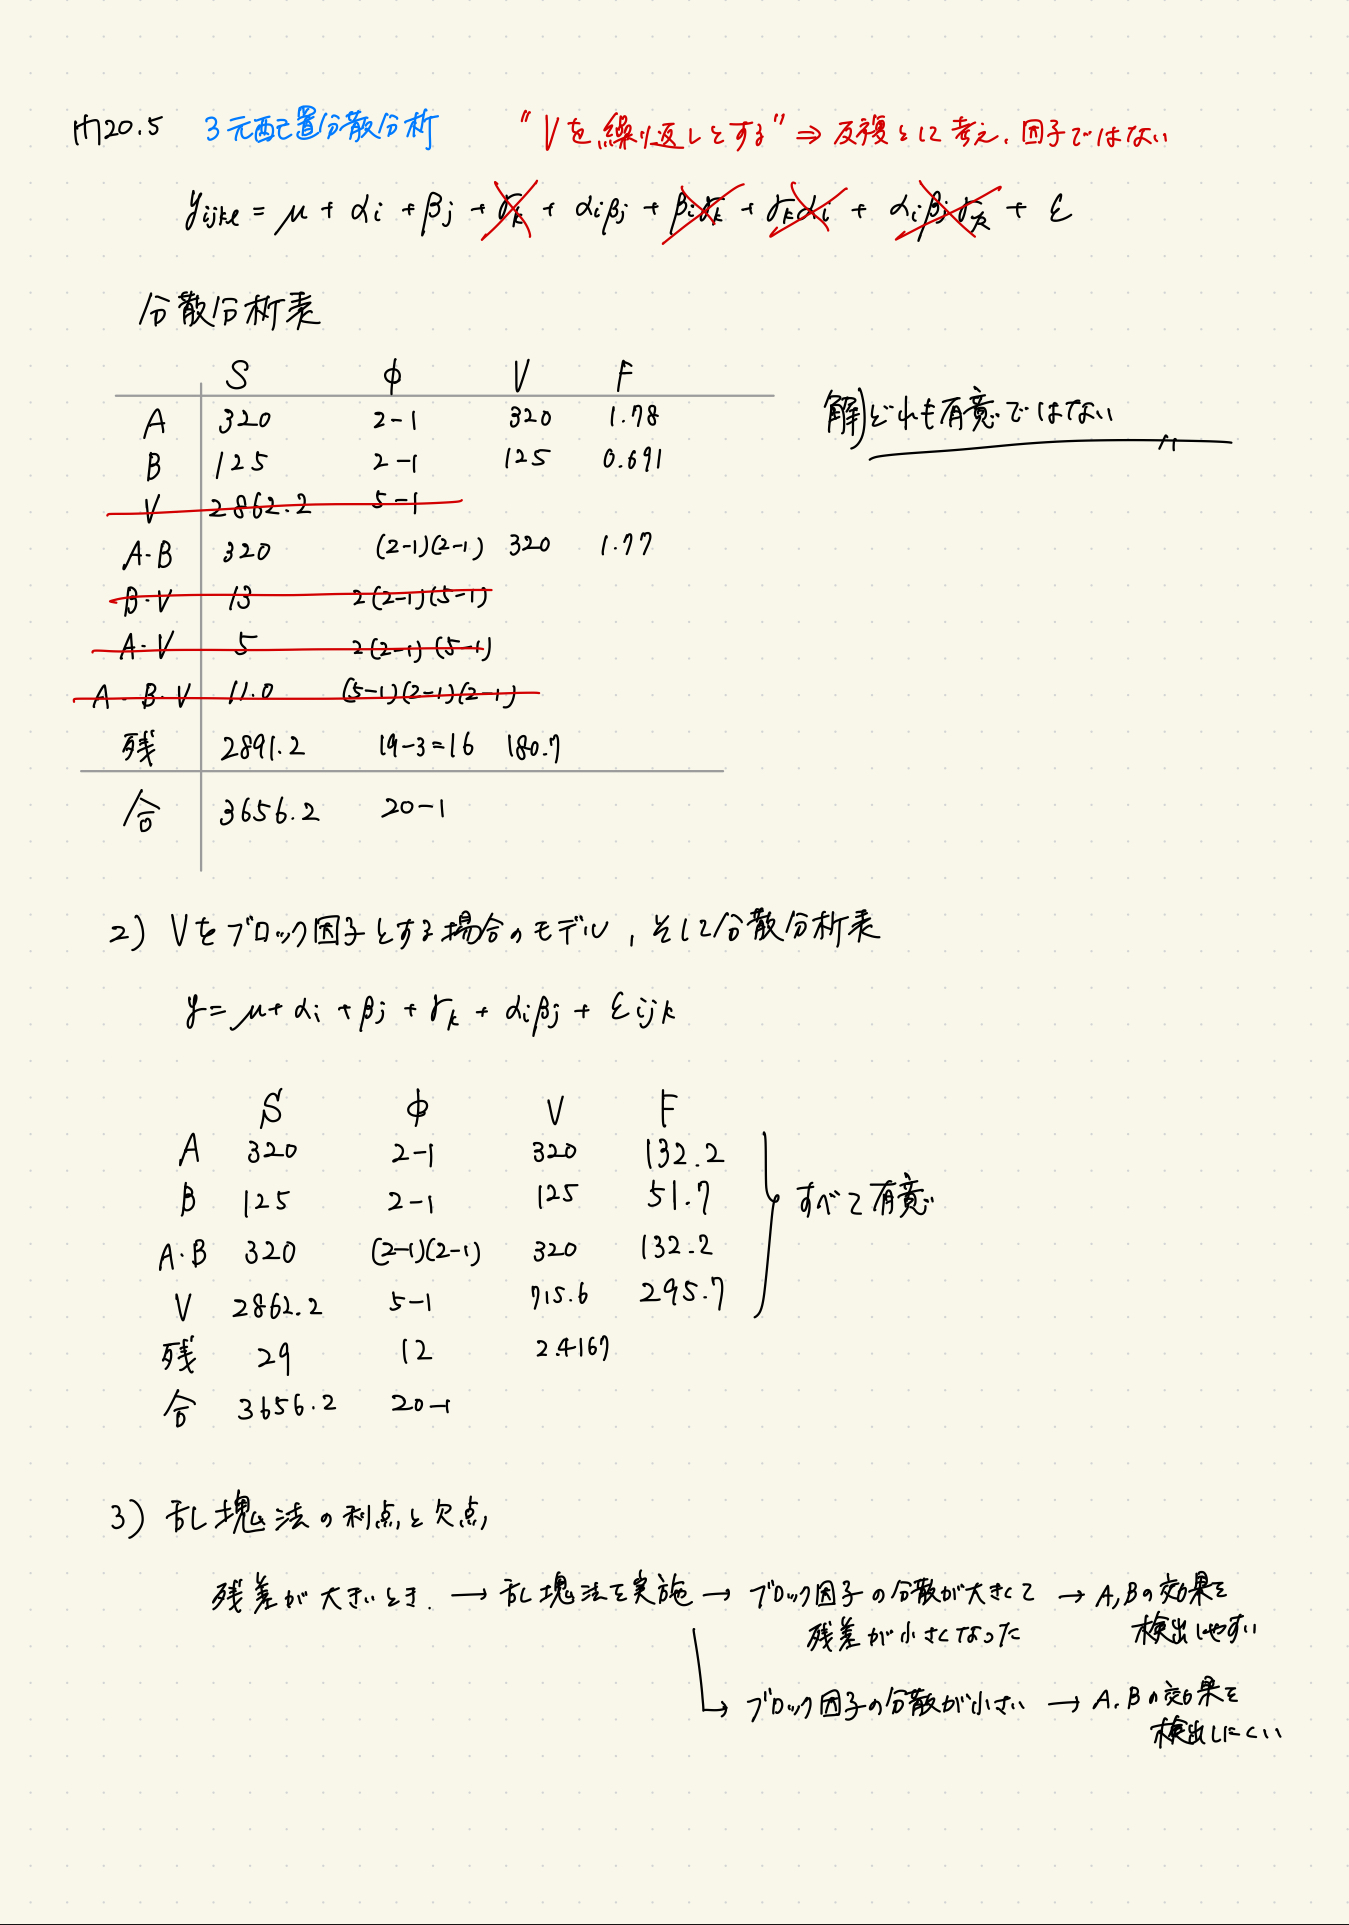 問20.5 3元配置分散分析 "Vを繰り返しとする"⇒反復として考え、因子ではない
yijkl = μ + αi + βj + γk + αiβj + βjγk + γkαi + αiβjγk + ε
分散分析表
S φ V F
A 320 2-1 320 1.78
解)どれも有意ではない
B 125 2-1 125 0.691
V 2862.2 5-1
A·B 320 (2-1)(2-1) 320 1.77
B·V 13 2(2-1)(5-1)
A·V 5 2(2-1)(5-1)
A·B·V 11.0 (5-1)(2-1)(2-1)
残 2891.2 19-3=16 180.7
合 3656.2 20-1
2) Vをブロック因子とする場合のモデル, そして分散分析表
y = μ + αi + βj + γk + αiβj + εijk
S φ V F
A 320 2-1 320 132.2
B 125 2-1 125 51.7
すべて有意
A·B 320 (2-1)(2-1) 320 132.2
V 2862.2 5-1 715.6 295.7
残 29 12 2.4167
合 3656.2 20-1
3) 乱塊法の利点と欠点
残差が大きいとき. → 乱塊法を実施 → ブロック因子の分散が大きくて → A,Bの効果を
残差が小さくなった 検出しやすい
↳ ブロック因子の分散が小さい → A,Bの効果を
検出しにくい